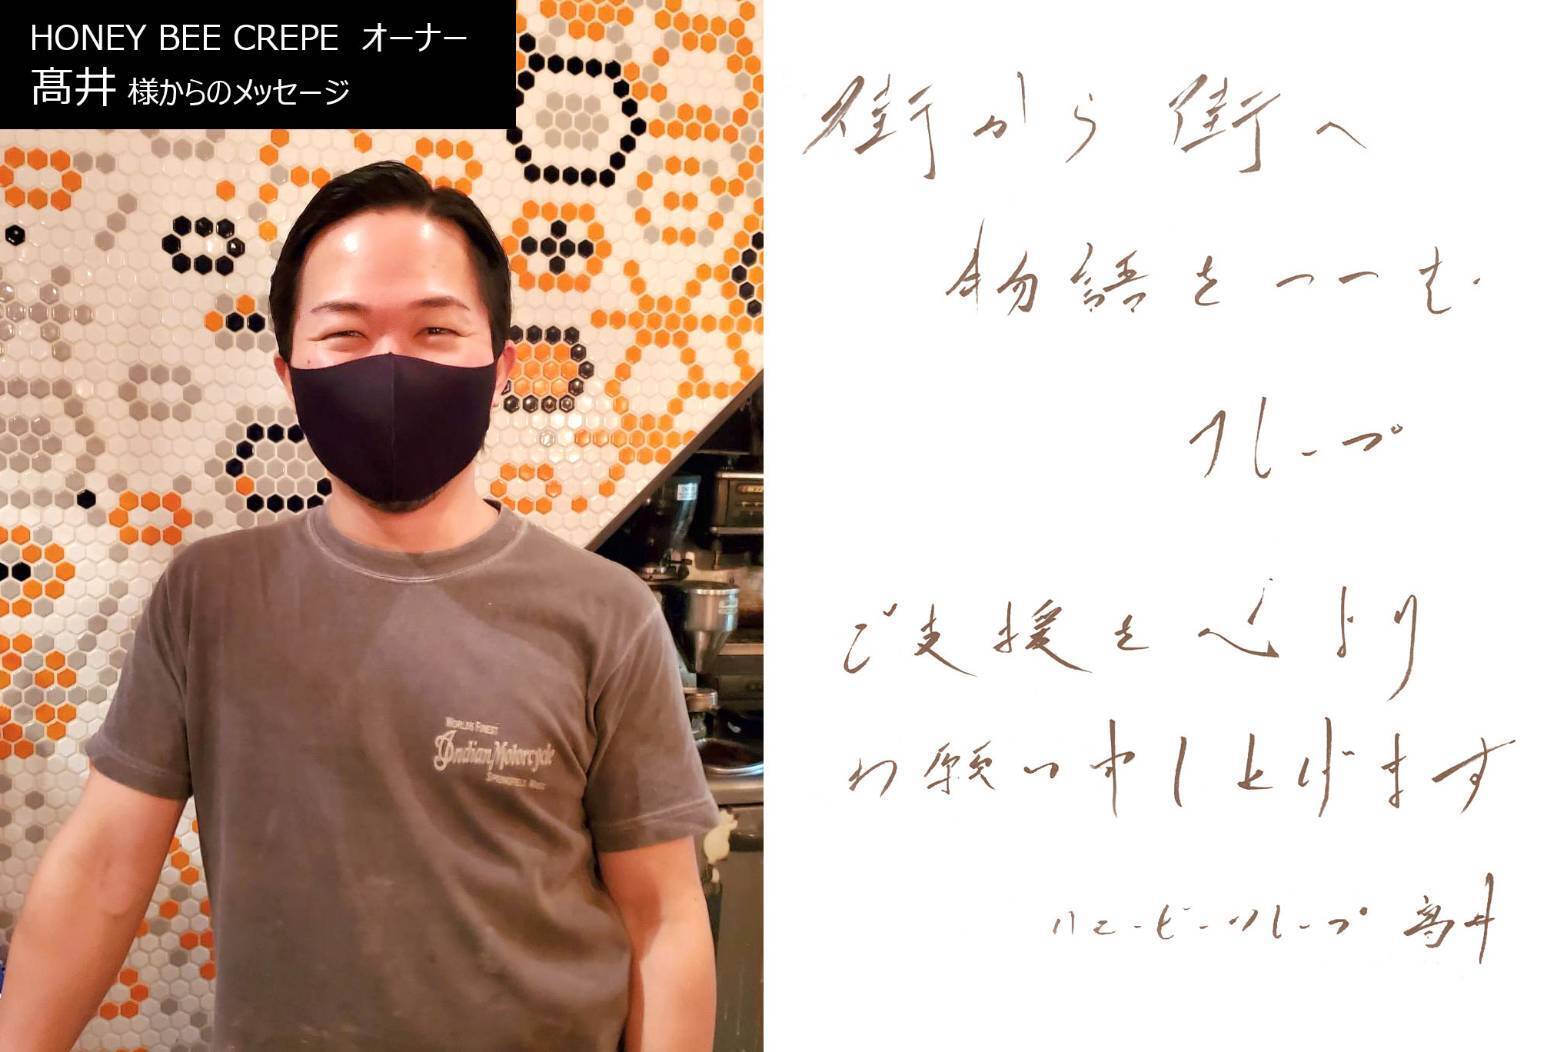 HONEY BEE CREPE オーナー
髙井 様からのメッセージ
WORLDS FINEST
Indian Motorcycle
SPRINGFIELD MASS
街から街へ
物語をつつむ
クレープ
ご支援を心より
お願い申し上げます
ハニービークレープ 髙井